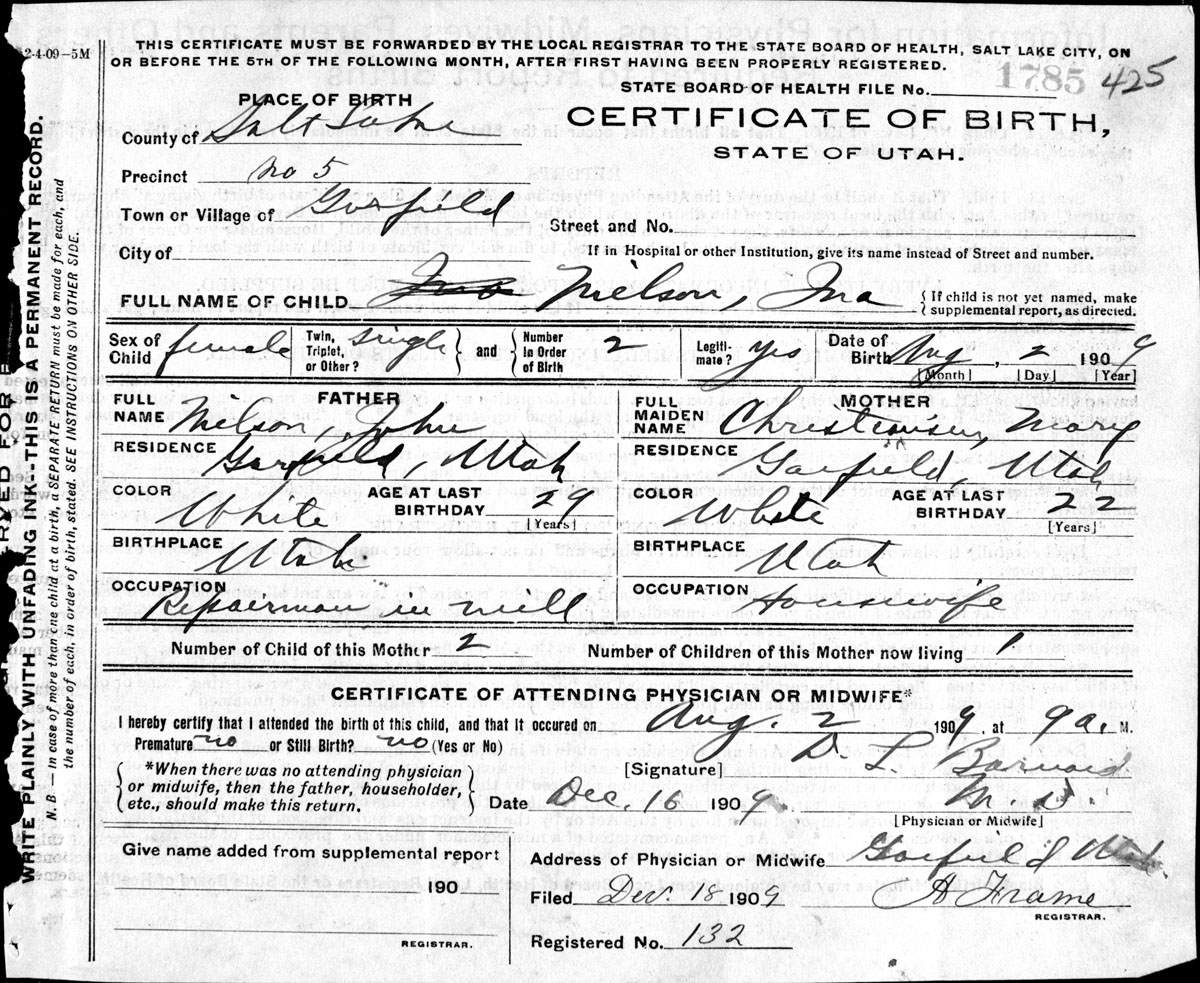 2-4-09-5M
THIS CERTIFICATE MUST BE FORWARDED BY THE LOCAL REGISTRAR TO THE STATE BOARD OF HEALTH, SALT LAKE CITY, ON
OR BEFORE THE 5TH OF THE FOLLOWING MONTH, AFTER FIRST HAVING BEEN PROPERLY REGISTERED.
1785 425
STATE BOARD OF HEALTH FILE No.
PLACE OF BIRTH
CERTIFICATE OF BIRTH,
STATE OF UTAH.
County of Salt Lake
Precinct no 5
Town or Village of Garfield
Street and No.
City of
If in Hospital or other Institution, give its name instead of Street and number.
FULL NAME OF CHILD Nielson, Ina
{If child is not yet named, make
supplemental report, as directed.
Sex of Child female
Twin, Triplet, or Other? single
} and {
Number in Order of Birth 2
Legiti-mate? yes
Date of Birth Aug 2 1909
[Month] [Day] [Year]
FATHER
FULL NAME Nielson, John
RESIDENCE Garfield, Utah
COLOR White
AGE AT LAST BIRTHDAY 29
[Years]
BIRTHPLACE Utah
OCCUPATION Repairman in mill
MOTHER
FULL MAIDEN NAME Christiansen, Mary
RESIDENCE Garfield, Utah
COLOR White
AGE AT LAST BIRTHDAY 22
[Years]
BIRTHPLACE Utah
OCCUPATION Housewife
Number of Child of this Mother 2 Number of Children of this Mother now living 1
CERTIFICATE OF ATTENDING PHYSICIAN OR MIDWIFE*
I hereby certify that I attended the birth of this child, and that it occured on Aug. 2 1909, at 9 a. M.
Premature no or Still Birth? no (Yes or No)
[Signature] D. L. Barnard
*When there was no attending physician
or midwife, then the father, householder,
etc., should make this return.
Date Dec. 16 1909
M D.
[Physician or Midwife]
Give name added from supplemental report
190
REGISTRAR.
Address of Physician or Midwife Garfield Utah
Filed Dec. 18 1909 A Frame
REGISTRAR.
Registered No. 132
WRITE PLAINLY WITH UNFADING INK--THIS IS A PERMANENT RECORD.
N. B. — In case of more than one child at a birth, a SEPARATE RETURN must be made for each, and
the number of each, in order of birth, stated. SEE INSTRUCTIONS ON OTHER SIDE.